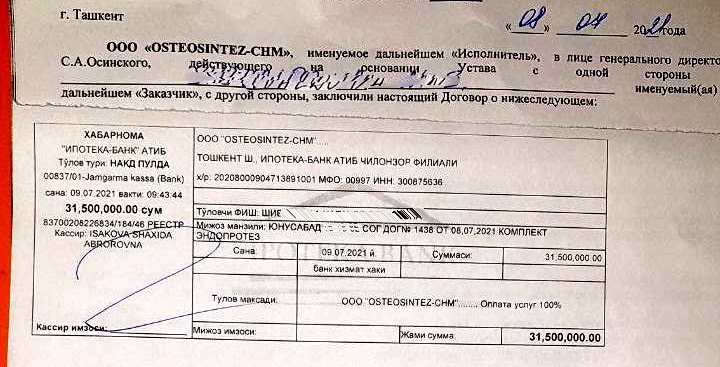 г. Ташкент
« 08 » 07 2021 года
ООО «OSTEOSINTEZ-CHM», именуемое дальнейшем «Исполнитель», в лице генерального директо
С.А.Осинского, действующего на основании Устава с одной стороны
именуемый(ая)
дальнейшем «Заказчик», с другой стороны, заключили настоящий Договор о нижеследующем:
ХАБАРНОМА
"ИПОТЕКА-БАНК" АТИБ
Тўлов тури: НАКД ПУЛДА
00837/01-Jamgarma kassa (Bank)
сана: 09.07.2021 вакти: 09:43:44
31,500,000.00 сум
83700208226834/184/46 РЕЕСТР
Кассир: ISAKOVA SHAXIDA
ABROROVNA
Кассир имзоси:
ООО "OSTEOSINTEZ-CHM".....
ТОШКЕНТ Ш., ИПОТЕКА-БАНК АТИБ ЧИЛОНЗОР ФИЛИАЛИ
х/р: 20208000904713891001 МФО: 00997 ИНН: 300875636
Тўловчи ФИШ: ШИЕ
Мижоз манзили: ЮНУСАБАД СОГ ДОГ№ 1438 ОТ 08,07,2021 КОМПЛЕКТ
ЭНДОПРОТЕЗ
Сана: 09.07.2021 й. Суммаси: 31,500,000.00
банк хизмат хаки
Тулов максади: ООО "OSTEOSINTEZ-CHM"........ Оплата услуг 100%
Мижоз имзоси: Жами сумма: 31,500,000.00